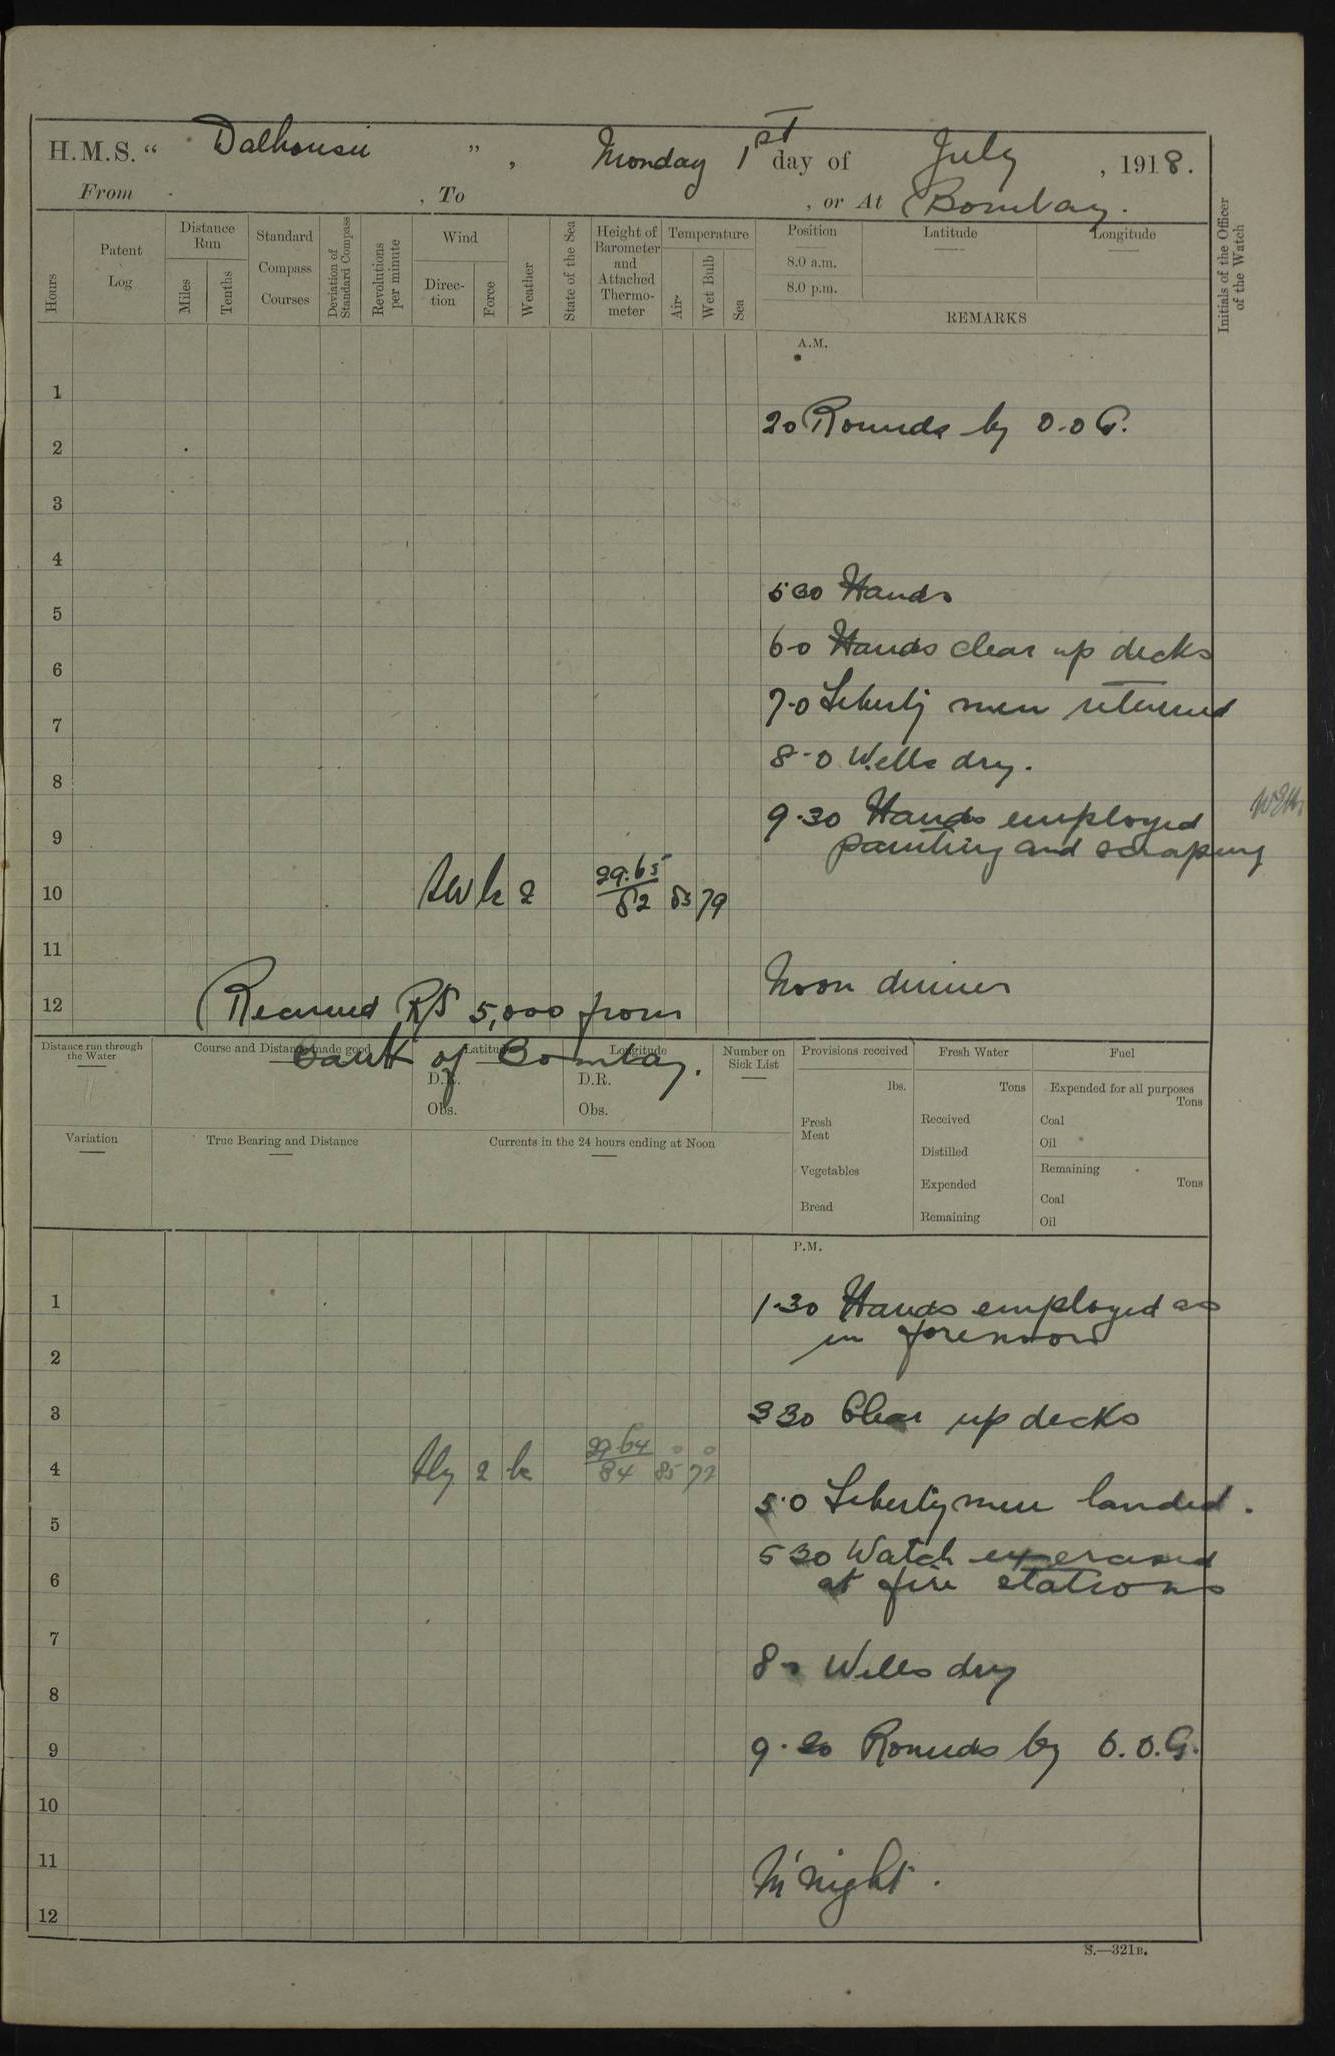 H.M.S. “ Dalhousie ” , Monday 1st day of July , 1918.
From , To , or At Bombay.
Hours
Patent Log
Distance Run
Miles
Tenths
Standard Compass Courses
Deviation of Standard Compass
Revolutions per minute
Wind
Direction
Force
Weather
State of the Sea
Height of Barometer and Attached Thermometer
Temperature
Air
Wet Bulb
Sea
Position
8.0 a.m.
8.0 p.m.
Latitude
Longitude
REMARKS
Initials of the Officer of the Watch
A.M.
1
20 Rounds by O.O G.
2
3
4
5 30 Hands
5
6-0 Hands clear up decks
6
7-0 Liberty men returned
7
8-0 Wells dry.
8
9.30 Hands employed
painting and scraping
9
10 SW b 2 29.65 / 82 83 79
11
Noon dinner
12 Received RS 5,000 from
bank of Bombay.
Distance run through the Water
Course and Distance made good
Latitude
D.R.
Obs.
Longitude
D.R.
Obs.
Number on Sick List
Provisions received
lbs.
Fresh Meat
Vegetables
Bread
Fresh Water
Tons
Received
Distilled
Expended
Remaining
Fuel
Expended for all purposes
Tons
Coal
Oil
Remaining
Tons
Coal
Oil
Variation
True Bearing and Distance
Currents in the 24 hours ending at Noon
P.M.
1 1.30 Hands employed as
in forenoon
2
3 3 30 Clear up decks
4 Sly 2 b 29 64 / 84 85 72
5.0 Liberty men landed.
5
5 30 Watch exercised
6 at fire stations
7
8 0 Wells dry
8
9 9.20 Rounds by O.O.G.
10
11 M'night.
12
S.—321B.